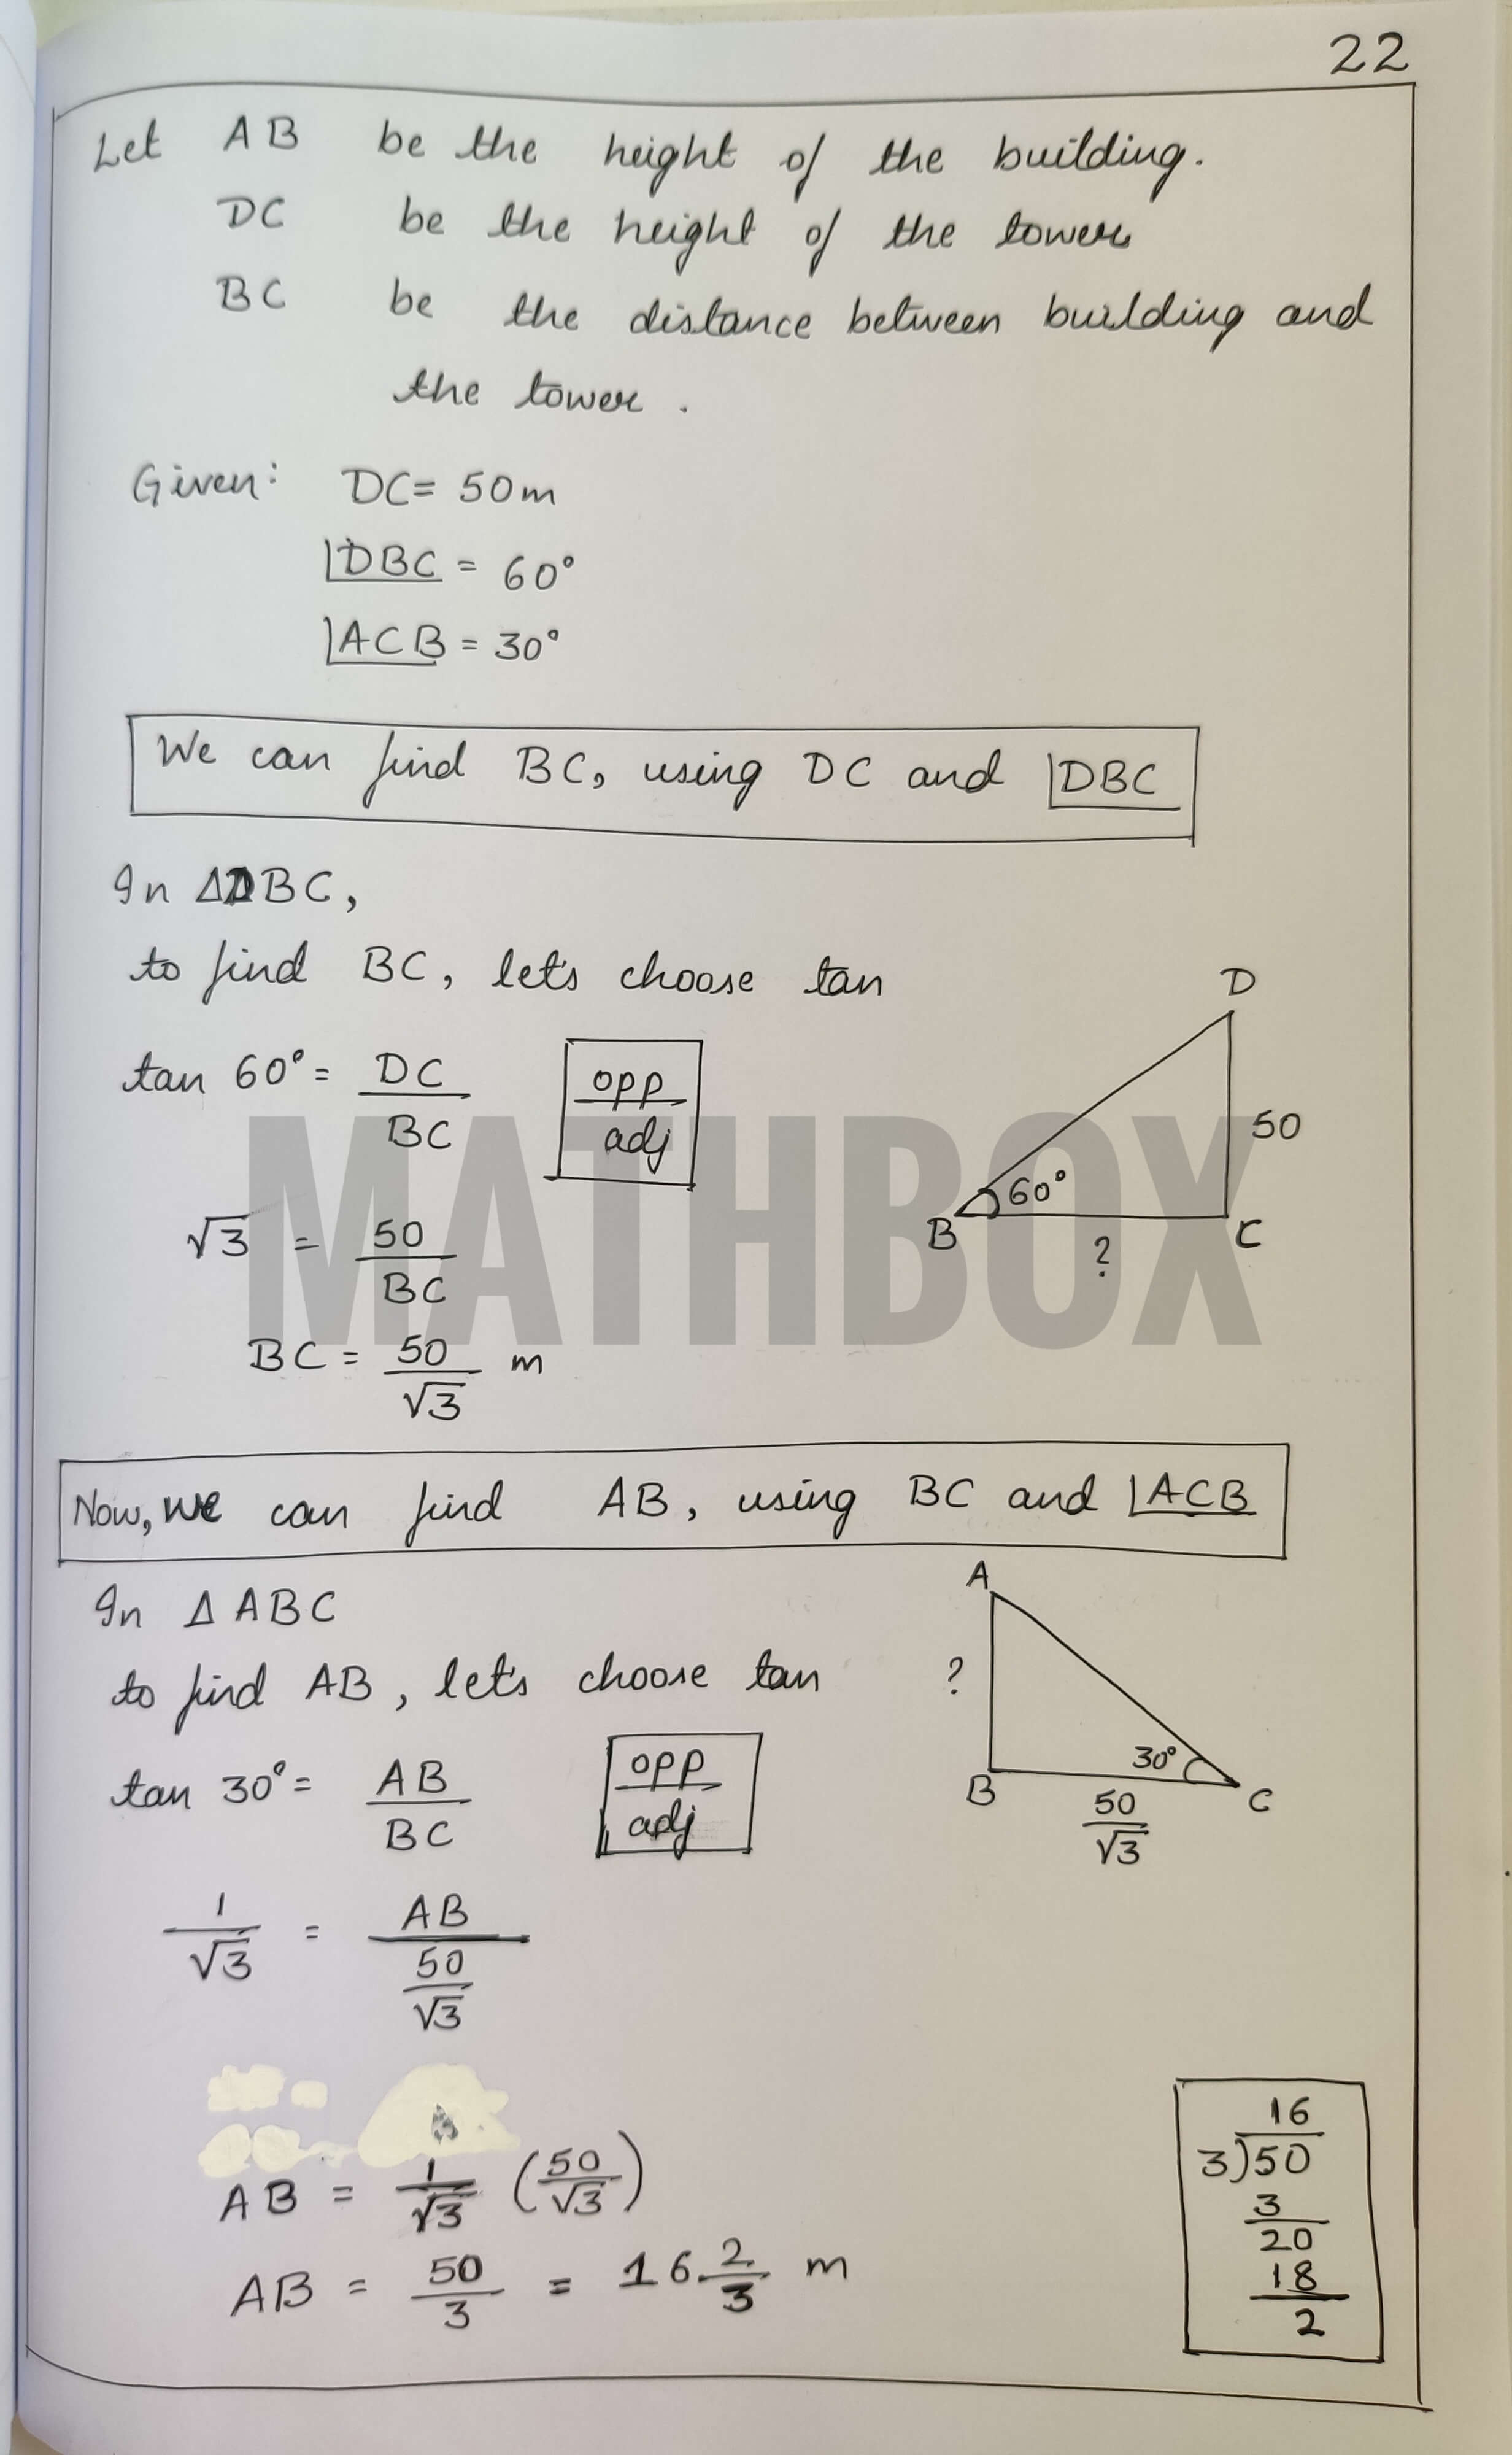 22
Let AB be the height of the building.
DC be the height of the tower
BC be the distance between building and
the tower.
Given: DC = 50m
∠DBC = 60°
∠ACB = 30°
We can find BC, using DC and ∠DBC
In ΔDBC,
to find BC, let's choose tan
tan 60° = DC/BC opp/adj
√3 = 50/BC
BC = 50/√3 m
D
50
60°
B ? C
MATHBOX
Now, we can find AB, using BC and ∠ACB
In Δ ABC
to find AB, let's choose tan
tan 30° = AB/BC opp/adj
1/√3 = AB/(50/√3)
A
?
30°
B C
50/√3
AB = 1/√3 (50/√3)
AB = 50/3 = 16 2/3 m
16
3)50
3
20
18
2